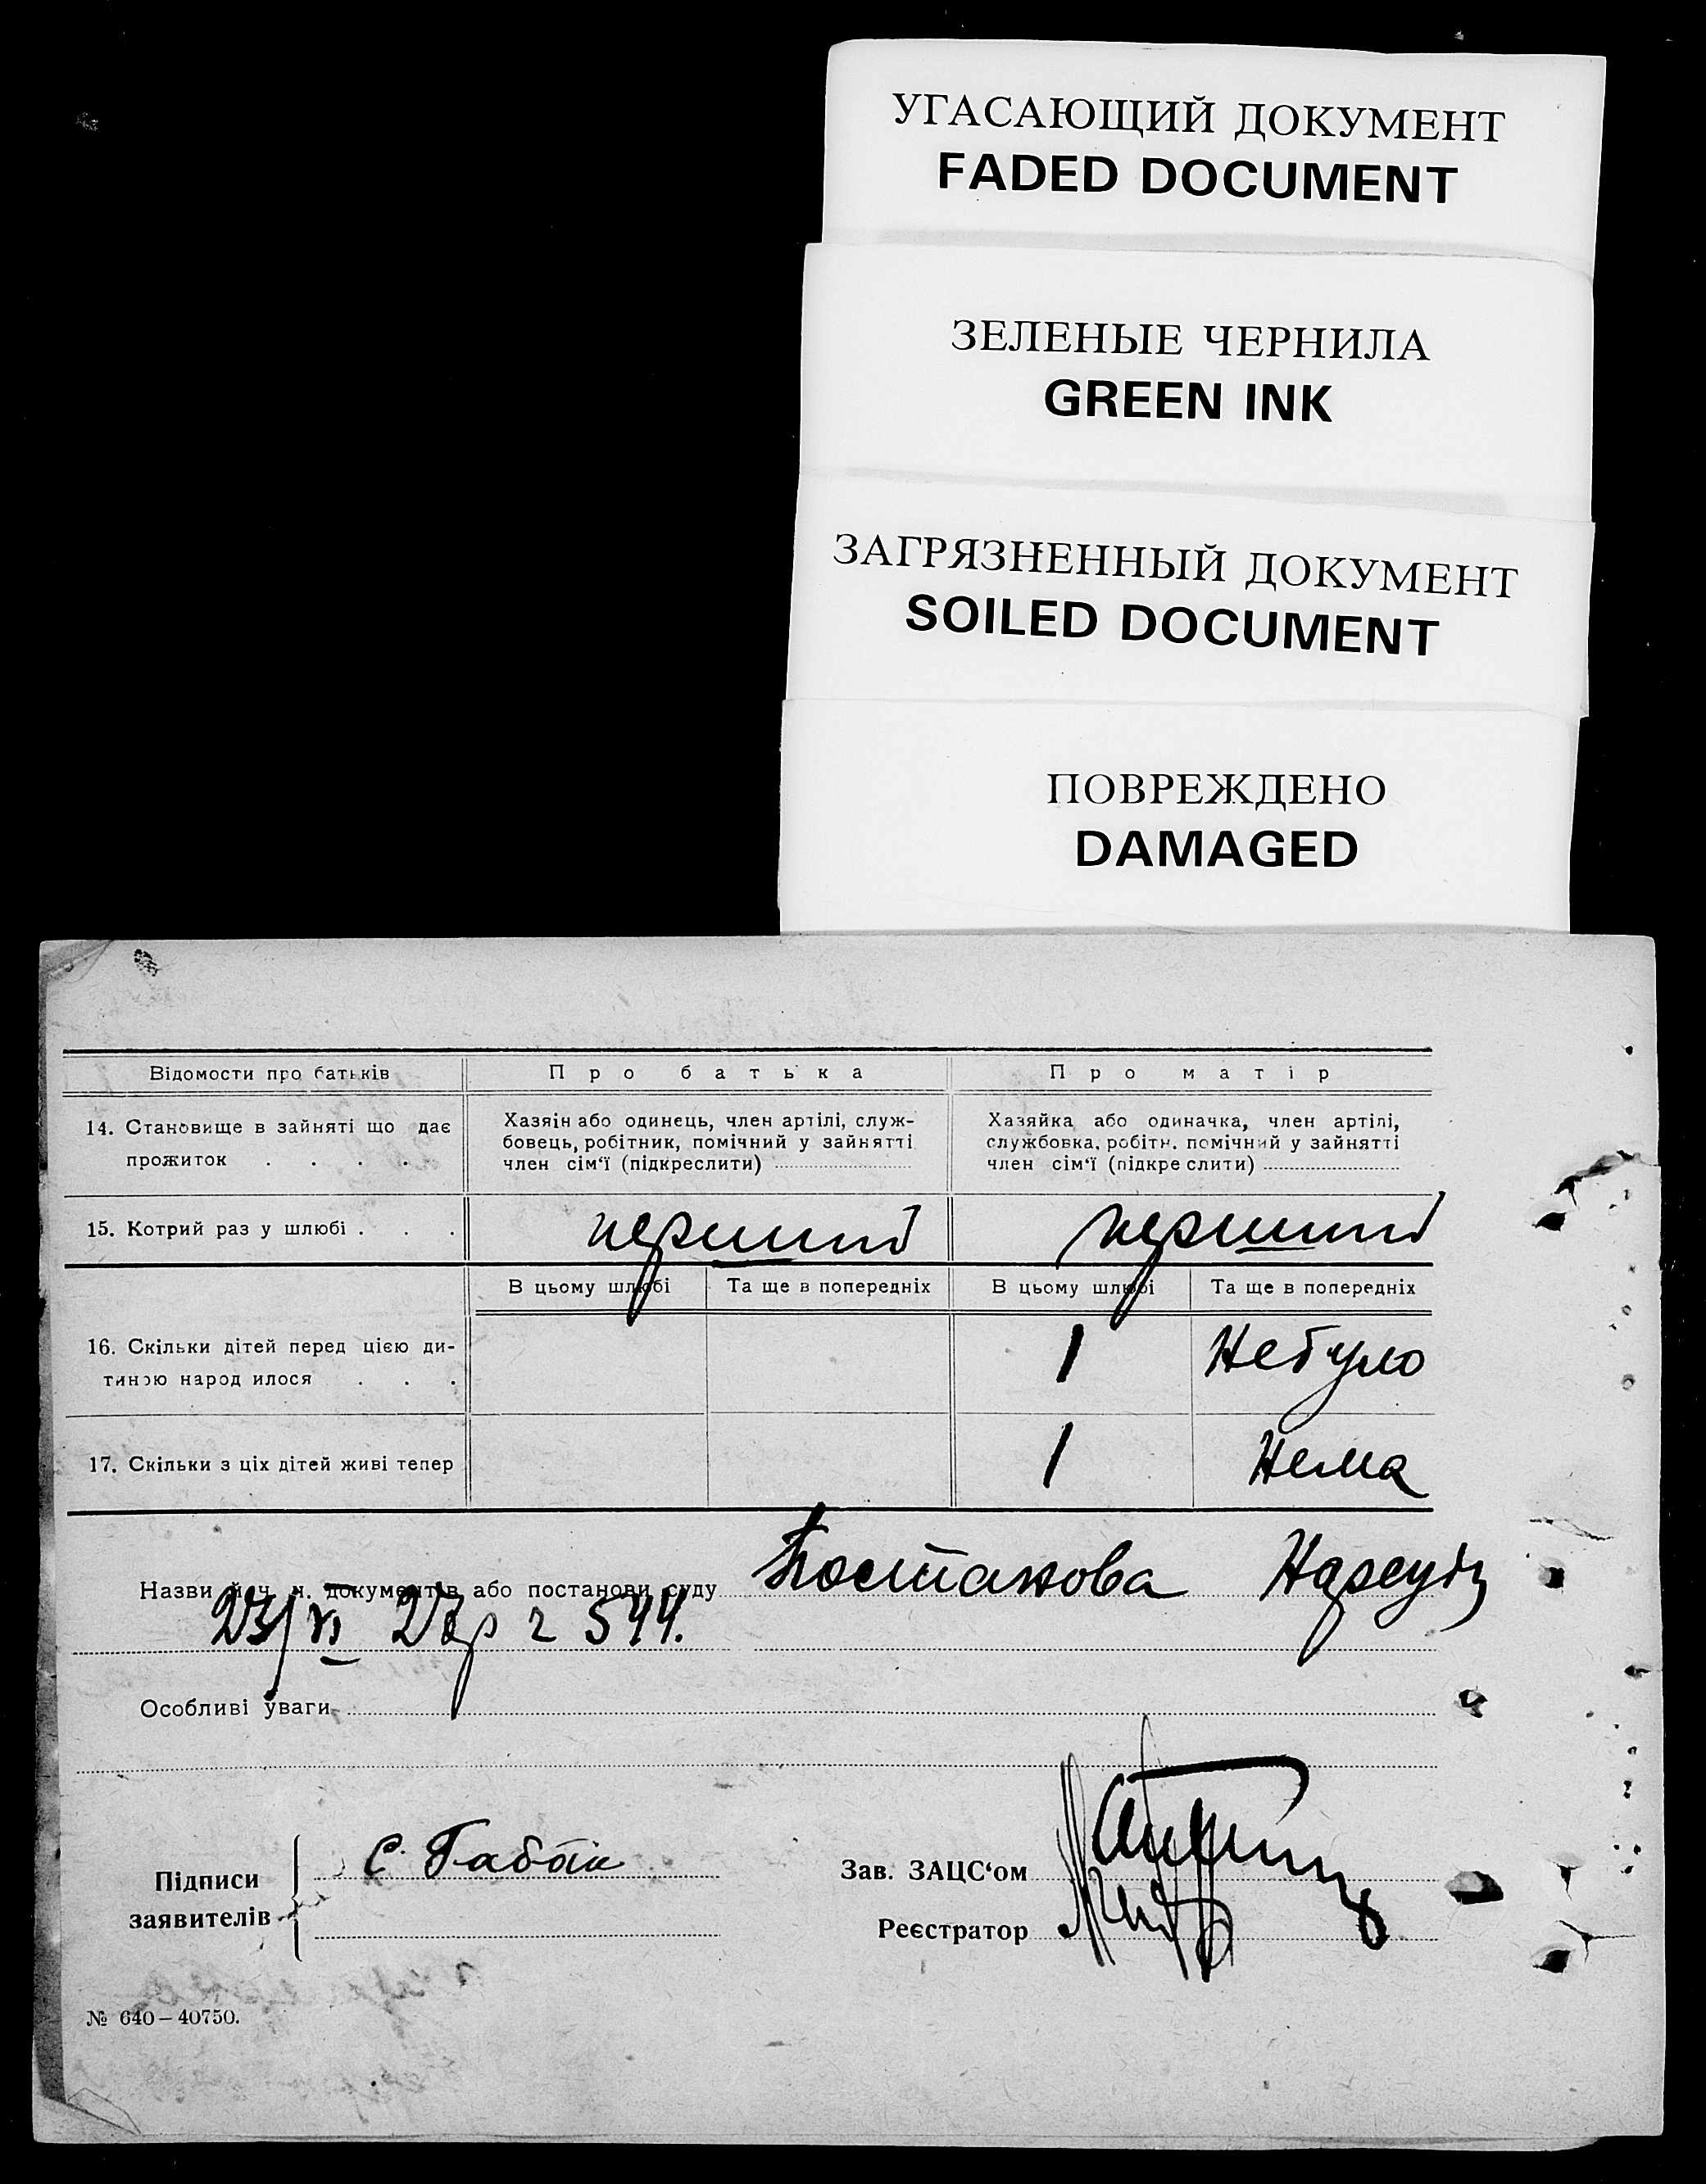 УГАСАЮЩИЙ ДОКУМЕНТ
FADED DOCUMENT
ЗЕЛЕНЫЕ ЧЕРНИЛА
GREEN INK
ЗАГРЯЗНЕННЫЙ ДОКУМЕНТ
SOILED DOCUMENT
ПОВРЕЖДЕНО
DAMAGED
Відомости про батьків Про батька Про матір
14. Становище в зайняті що дає
прожиток . . . .
Хазяін або одинець, член артілі, служ-
бовець, робітник, помічний у зайнятті
член сім‘ї (підкреслити)
Хазяйка або одиначка, член артілі,
службовка, робітн. помічний у зайнятті
член сім‘ї (підкре слити)
15. Котрий раз у шлюбі . . . перший перший
В цьому шлюбі Та ще в попередніх В цьому шлюбі Та ще в попередніх
16. Скільки дітей перед цією ди-
тиною народ илося . . . 1 Небуло
17. Скільки з ціх дітей живі тепер 1 Нема
Назви й ч. н. документів або постанови суду Постанова Нарсуду
23/VI 27р 544.
Особливі уваги
Підписи
заявителів
С. Габа
Зав. ЗАЦС‘ом
Реєстратор
№ 640–40750.